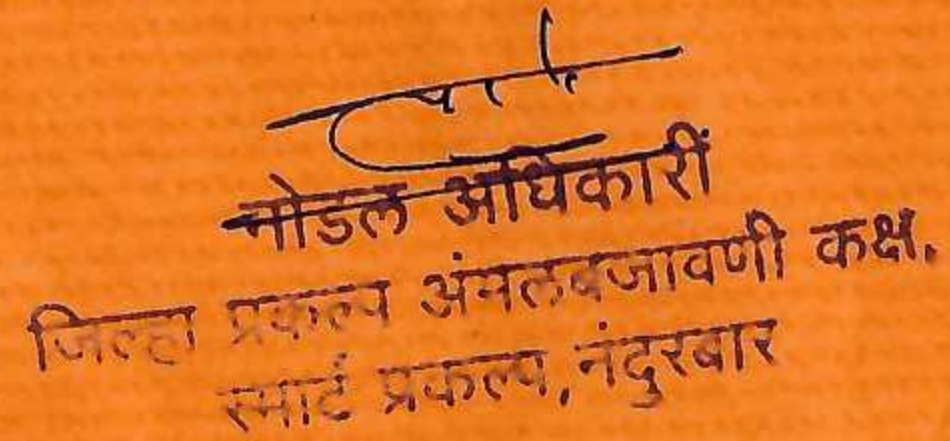 नोडल अधिकारीं
जिल्हा प्रकल्प अंमलबजावणी कक्ष,
स्मार्ट प्रकल्प, नंदुरबार